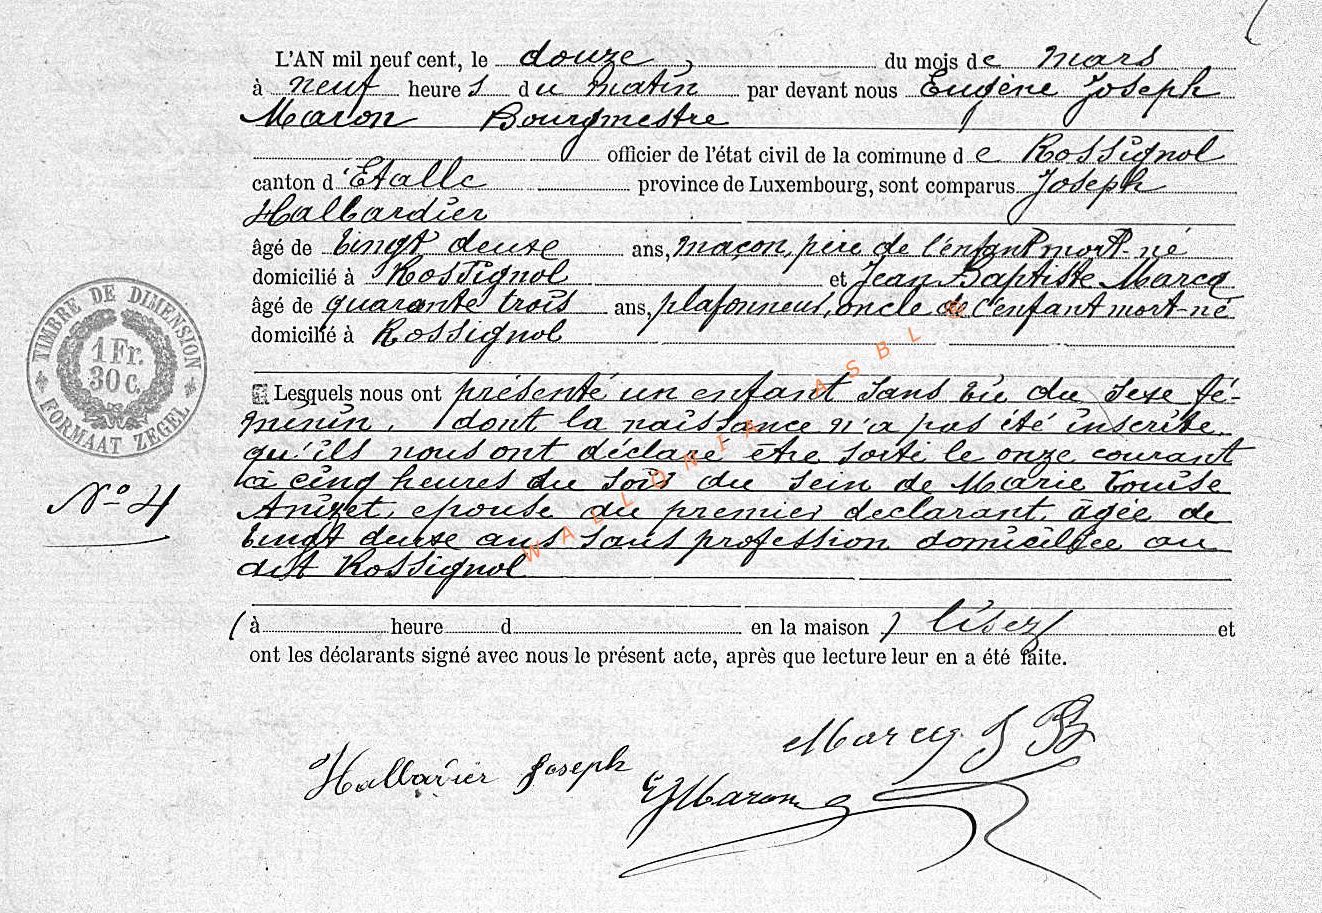 L'AN mil neuf cent, le douze, du mois de mars
à neuf heures du matin par devant nous Eugène Joseph
Maron Bourgmestre
officier de l'état civil de la commune de Rossignol
canton d'Etalle province de Luxembourg, sont comparus Joseph
Halbardier
âgé de vingt deuxe ans, maçon, père de l'enfant mort-né
domicilié à Rossignol et Jean Baptiste Marcq
âgé de quarante trois ans, plafonneur, oncle de l'enfant mort-né
domicilié à Rossignol
Lesquels nous ont présenté un enfant sans vie du sexe fé-
minin, dont la naissance n'a pas été inscrite
qu'ils nous ont déclaré être sorti le onze courant
à cinq heures du soir du sein de Marie Louise
Anizet, epouse du premier declarant, âgée de
vingt deuxe ans sans profession domiciliée au
dit Rossignol
(à heure d en la maison) lisez/ et
ont les déclarants signé avec nous le présent acte, après que lecture leur en a été faite.
Marcq J B
Joseph
EJMaron
N° 4
TIMBRE DE DIMENSION
1 Fr.
30 C.
FORMAAT ZEGEL
WALLONIA ASBL